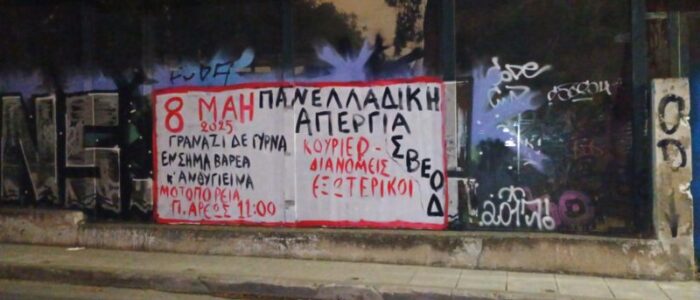 8 ΜΑΗ
2025
ΓΡΑΝΑΖΙ ΔΕ ΓΥΡΝΑ
ΕΝΣΗΜΑ ΒΑΡΕΑ
κ' ΑΝΘΥΓΙΕΙΝΑ
ΜΟΤΟΠΟΡΕΙΑ
Π. ΑΡΕΩΣ 11:00
ΠΑΝΕΛΛΑΔΙΚΗ
ΑΠΕΡΓΙΑ
ΚΟΥΡΙΕΡ -
ΔΙΑΝΟΜΕΙΣ
ΕΞΩΤΕΡΙΚΟΙ
ΣΒΕΟΔ
2017!